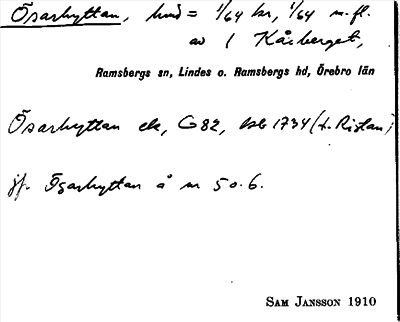 Ösarhyttan, hmd = 1/64 kr, 1/64 m. fl.
av 1 Kåsberget,
Ramsbergs sn, Lindes o. Ramsbergs hd, Örebro län
Ösarhyttan ek, G82, 1734 (t. Ristan)
jf. Ösarhyttan å nr 5 o. 6.
SAM JANSSON 1910